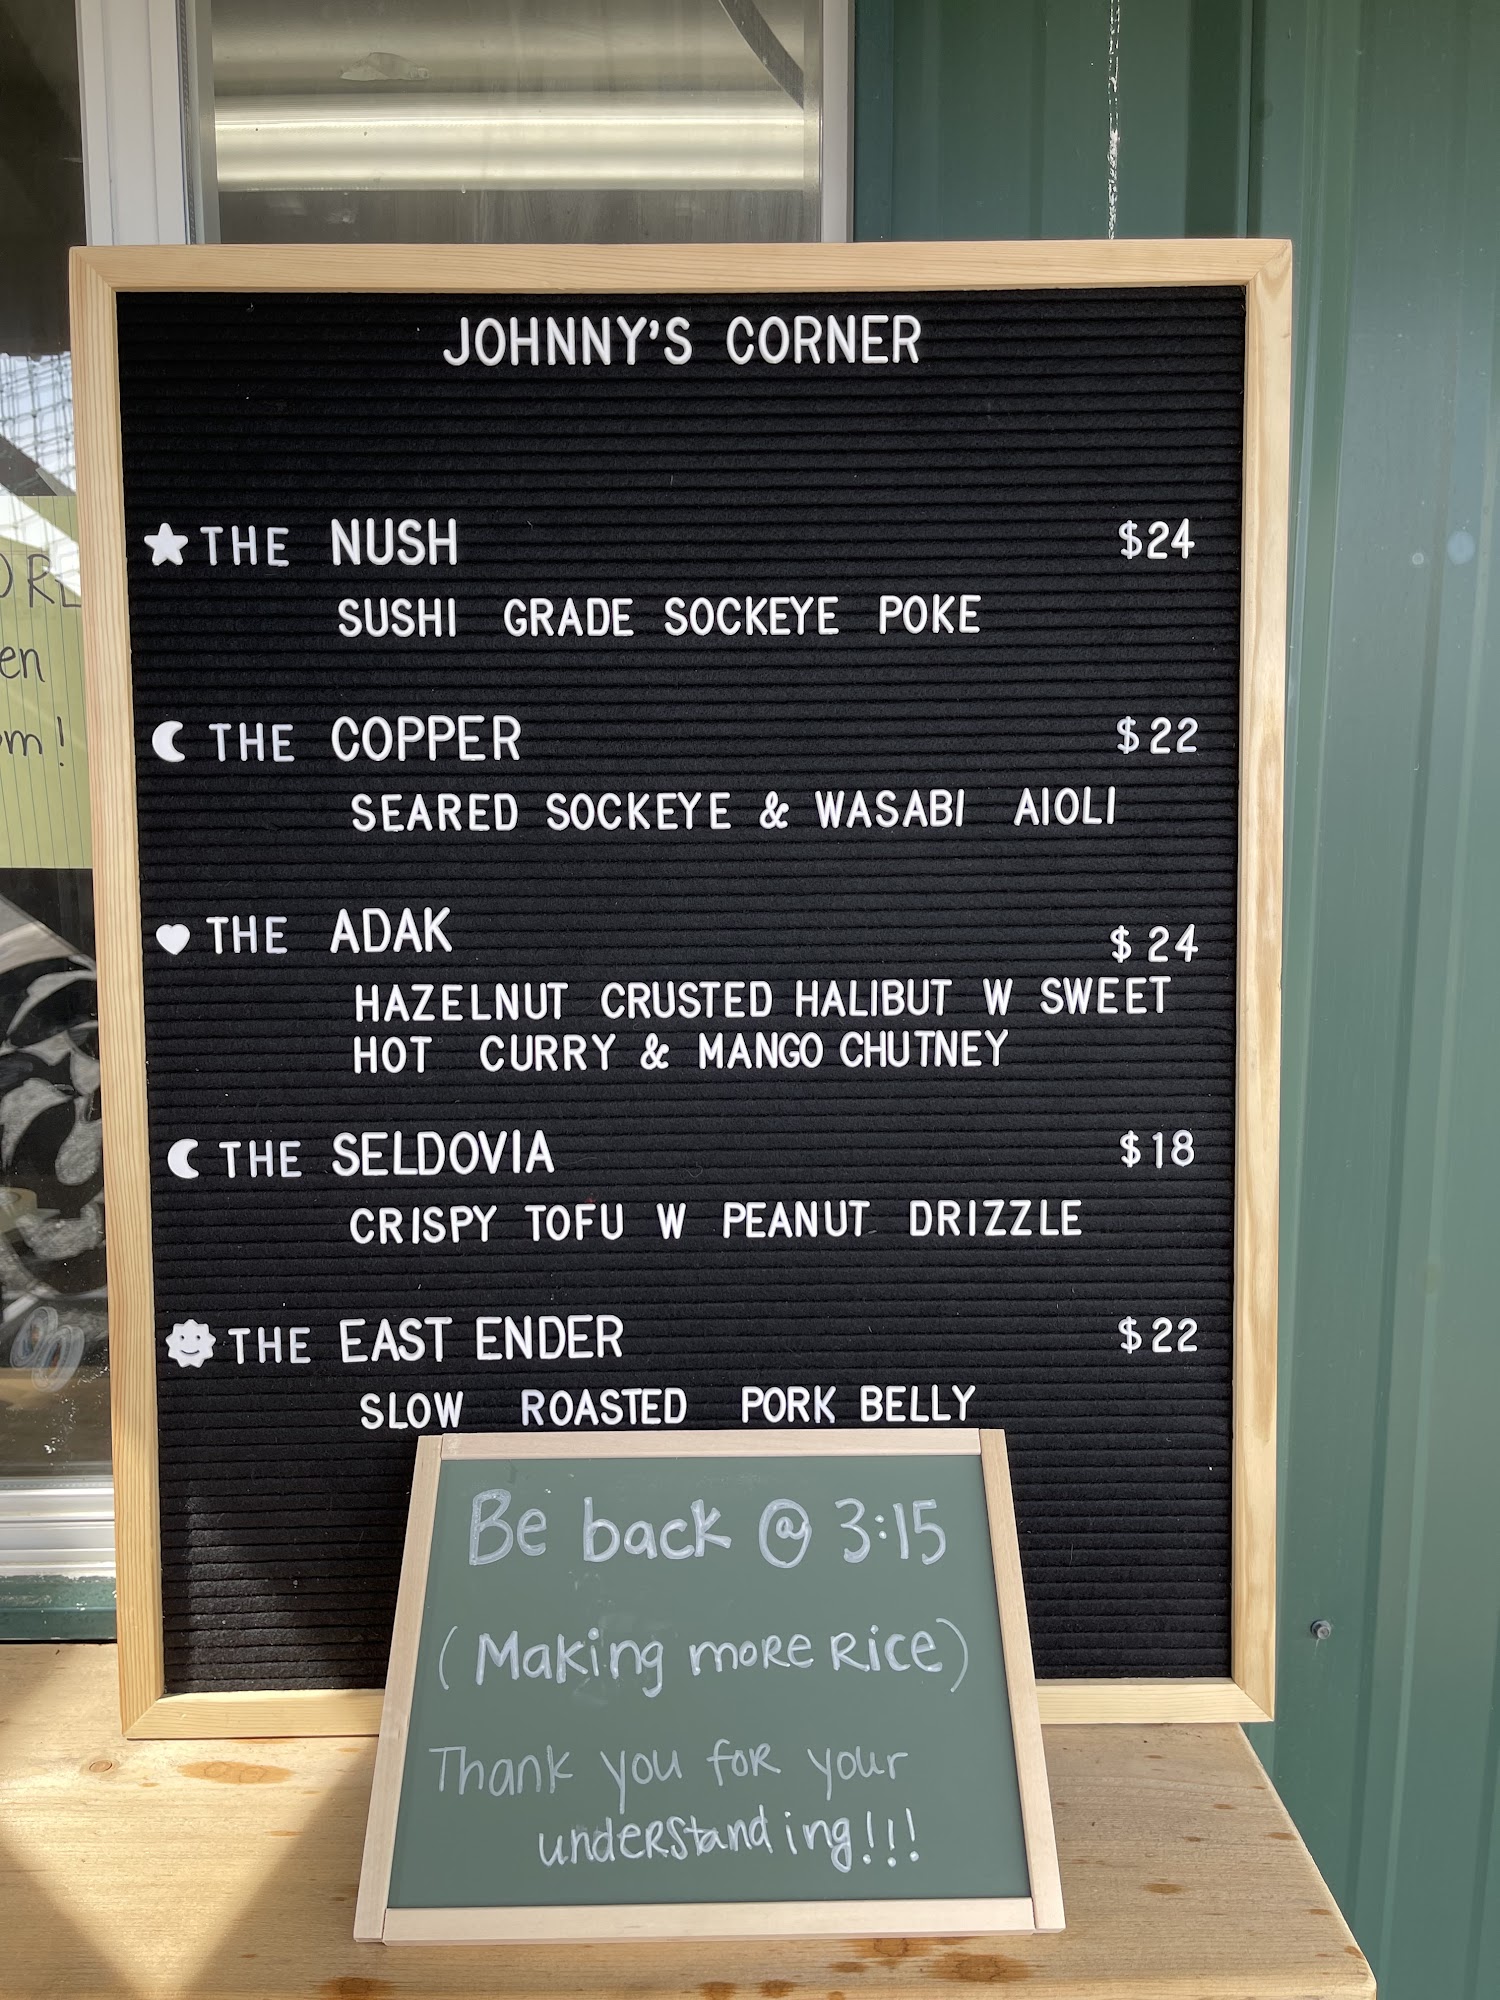 JOHNNY'S CORNER
THE NUSH $24
SUSHI GRADE SOCKEYE POKE
THE COPPER $22
SEARED SOCKEYE & WASABI AIOLI
THE ADAK $24
HAZELNUT CRUSTED HALIBUT W SWEET
HOT CURRY & MANGO CHUTNEY
THE SELDOVIA $18
CRISPY TOFU W PEANUT DRIZZLE
THE EAST ENDER $22
SLOW ROASTED PORK BELLY
Be back @ 3:15
(Making more Rice)
Thank you for your
understanding!!!